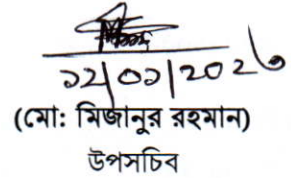 ১২/০১/২০২৬
(মো: মিজানুর রহমান)
উপসচিব